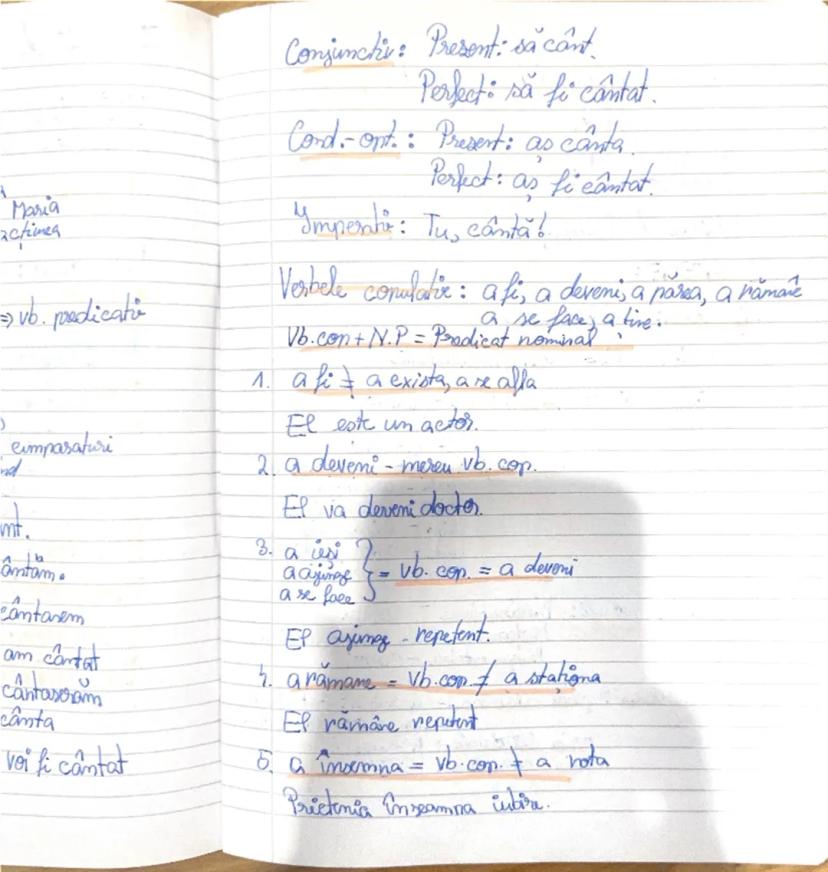 Maria
acțiunea
=> vb. predicativ
cumparaturi
nd
mt.
ântăm.
cântasem
am cântat
cântaserăm
cânta
voi fi cântat
Conjunctiv: Prezent: să cânt.
Perfect: să fi cântat.
Cond.-opt.: Prezent: aș cânta.
Perfect: aș fi cântat.
Imperativ: Tu, cântă!
Verbele copulative: a fi, a deveni, a părea, a rămâne
a se face, a ține.
Vb.cop+N.P = Predicat nominal
1. a fi ≠ a exista, a se afla
El este un actor.
2. a deveni - mereu vb. cop.
El va deveni doctor.
3. a ieși
a ajunge } = vb. cop. = a deveni
a se face
El ajunge repetent.
4. a rămane = vb.cop. ≠ a staționa
El rămâne repetent
5. a însemna = vb.cop. ≠ a nota
Prietenia înseamna iubire.